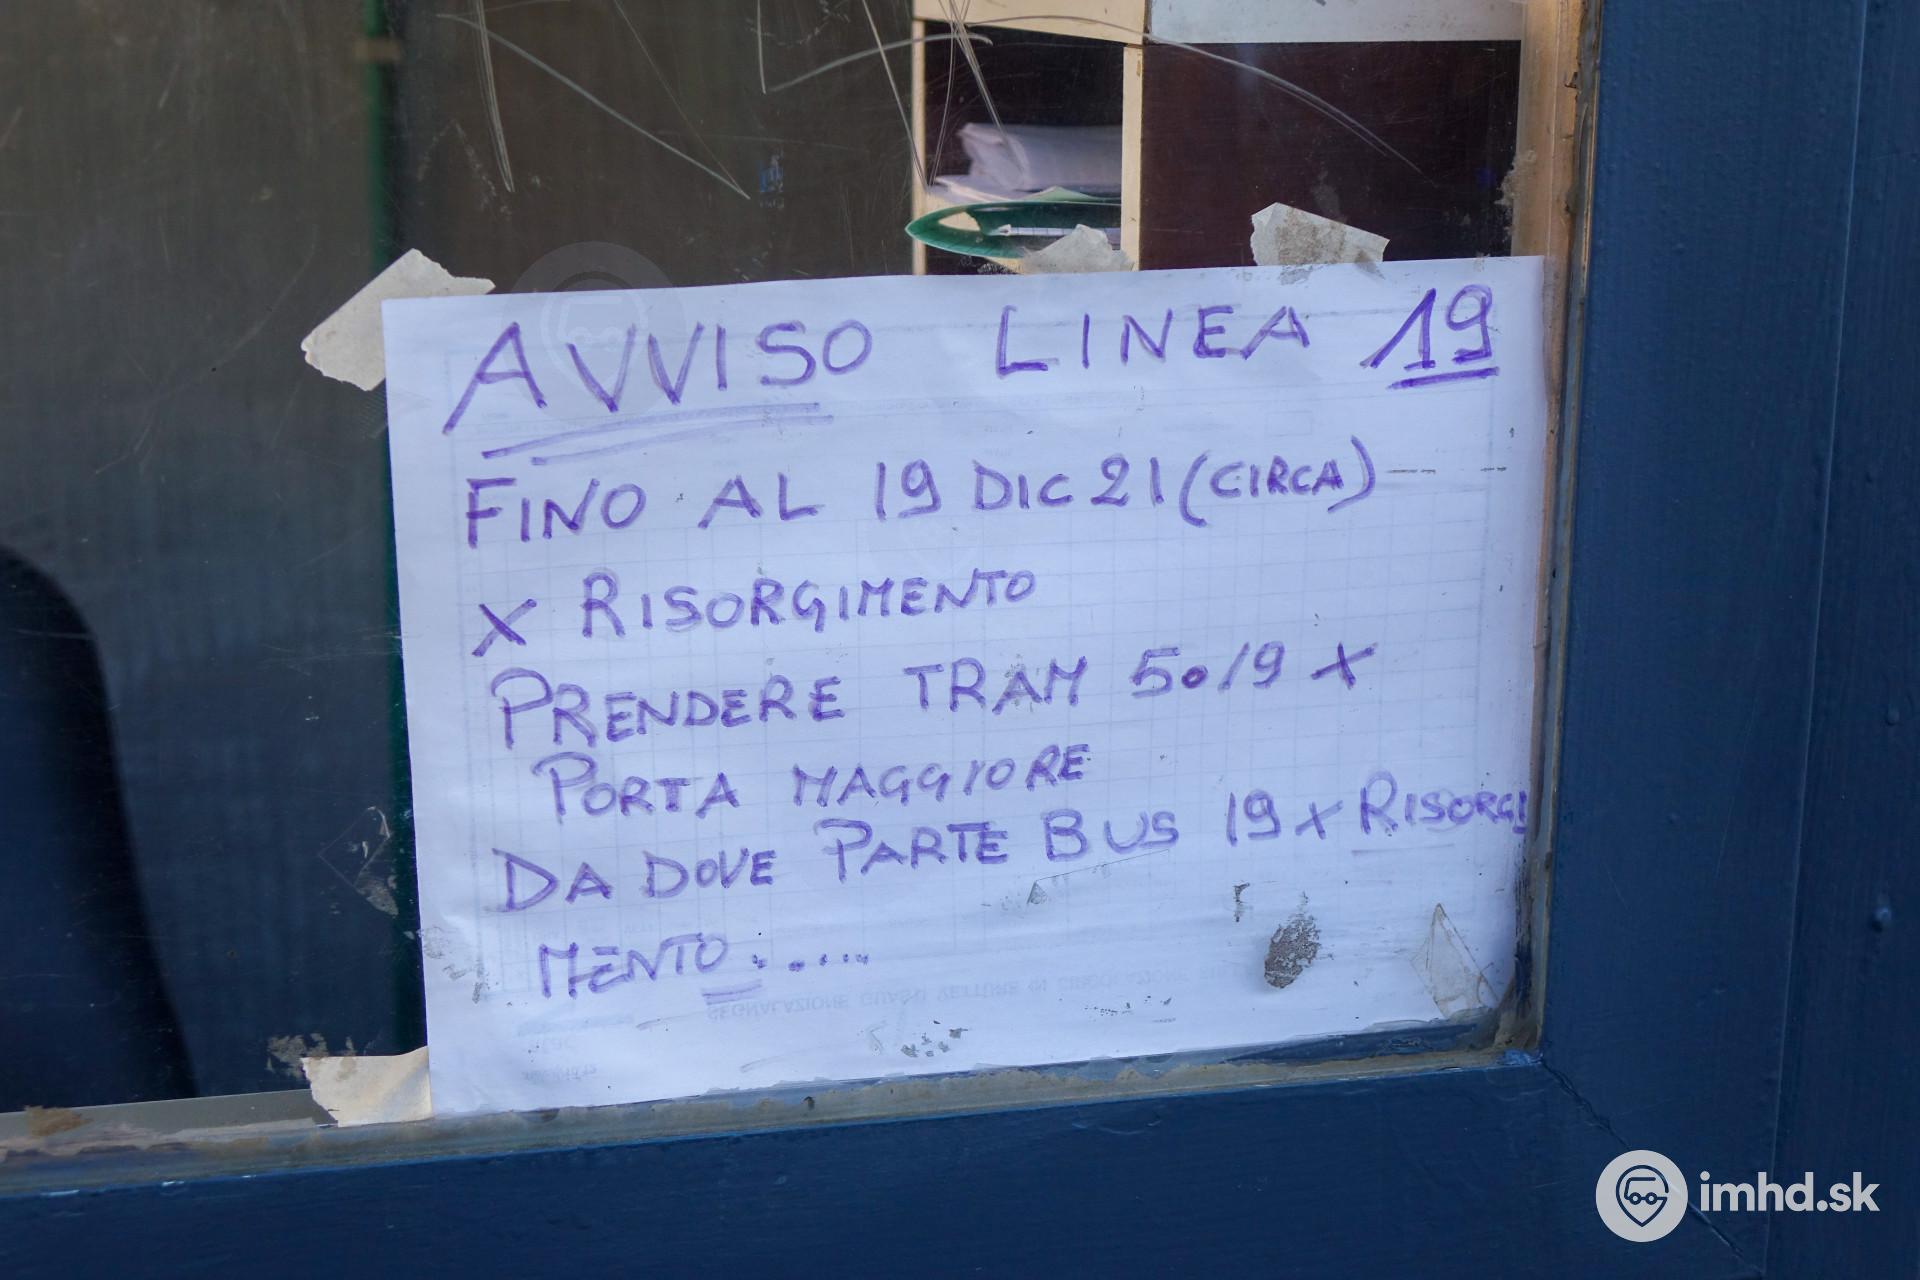 AVVISO LINEA 19
FINO AL 19 DIC 21 (CIRCA)
X RISORGIMENTO
PRENDERE TRAM 5 o 19 X
PORTA MAGGIORE
DA DOVE PARTE BUS 19 X RISORGI
MENTO:.....
SEGNALAZIONE GUASTI VETTURE IN CIRCOLAZIONE
imhd.sk